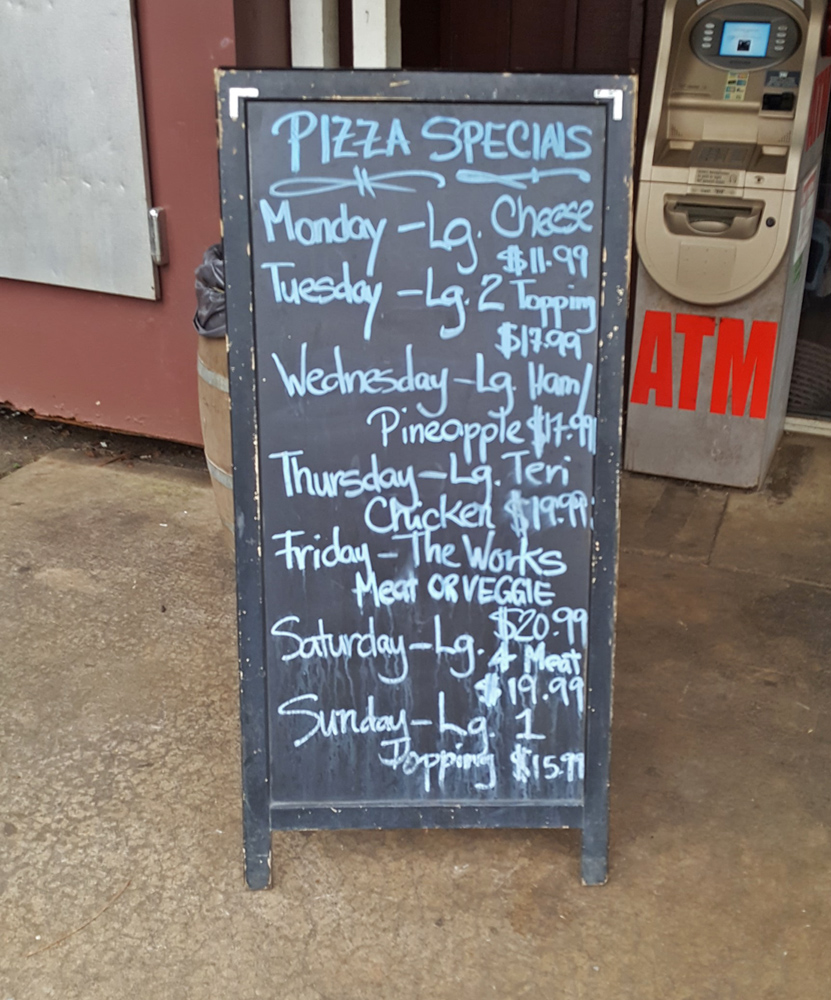 PIZZA SPECIALS
Monday - Lg. Cheese
$11.99
Tuesday - Lg. 2 Topping
$17.99
Wednesday - Lg. Ham/
Pineapple $17.99
Thursday - Lg. Teri
Chicken $19.99
Friday - The Works
Meat OR VEGGIE
$20.99
Saturday - Lg. 4 Meat
$19.99
Sunday - Lg. 1
Topping $15.99
ATM